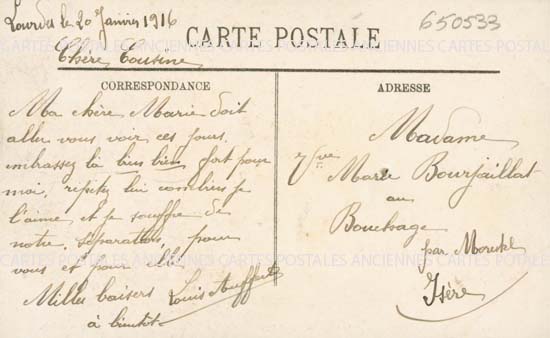 Lourdes le 20 Janvier 1916
650533
CARTE POSTALE
Chère Cousine
CORRESPONDANCE
Ma chère Marie doit
aller vous voir ces jours.
embrassez là bien bien fort pour
moi, répétez lui combien je
l'aime et je souffre de
notre séparation, pour
vous et pour elle
Milles baisers Louis
à bientôt
ADRESSE
Madame
Vve Marie Bourjaillat
au
Bouchage
par Morestel
Isère
CARTES POSTALES ANCIENNES CARTES POSTALES